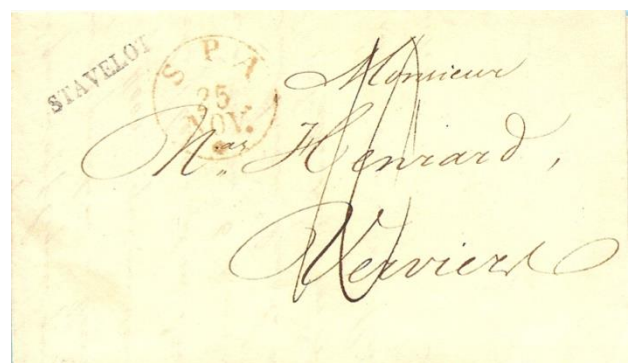 STAVELOT
SPA
25
NOV.
Monsieur
N.as Henrard,
Verviers